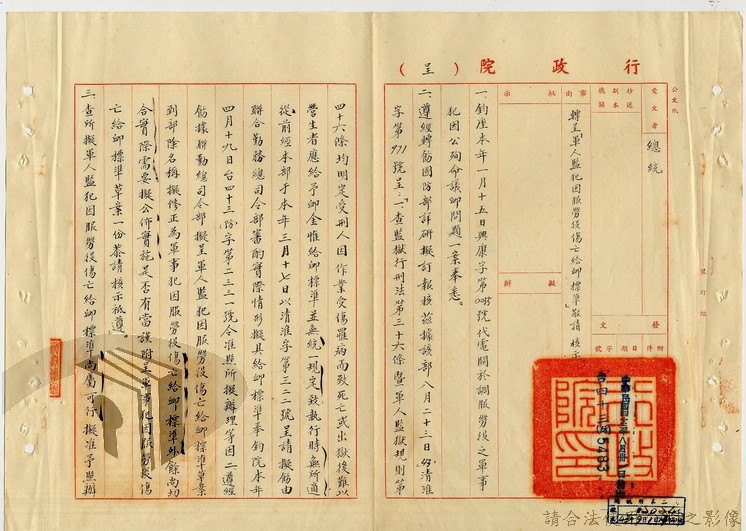 行政院（呈）
公文紙
受文者
總統
抄送副本機關
事由
轉呈軍人監犯因服勞役傷亡給卹標準敬請核示
批示
擬辦
發文
附件
日期
字號
中華民國四十三年八月卅一日
台四十三
5483
一、鈞座本年一月十五日興康字第0035號代電關於調服勞役之軍事
犯因公殉命議卹問題一案奉悉。
二、遵經轉飭國防部詳研擬訂報核茲據該部八月二十三日清淮
字第971號呈：「一查監獄行刑法第三十六條暨軍人監獄規則第
四十六條均明定受刑人因作業受傷罹病而致死亡或出獄後難以
營生者應給予卹金惟給卹標準並無統一規定致執行時無所適
從前經本部于本年三月十七日以清淮字第三二二號呈請擬飭由
聯合勤務總司令部審酌實際情形擬具給卹標準奉鈞院本年
四月十九日台四十三防字第二三三一號令准照所擬辦理等因二遵經
飭據聯勤總司令部擬呈軍人監犯因服勞役傷亡給卹標準草案
到部除名稱擬修正為軍事犯因服勞役傷亡給卹標準外餘尚切
合實際需要擬公佈實施是否有當謹附呈軍事犯因服勞役傷
亡給卹標準草案一份恭請核示祗遵」
三、查所擬軍人監犯因服勞役傷亡給卹標準尚屬可行擬准予照辦
裝訂線
行政院印
請合法使用
之影像